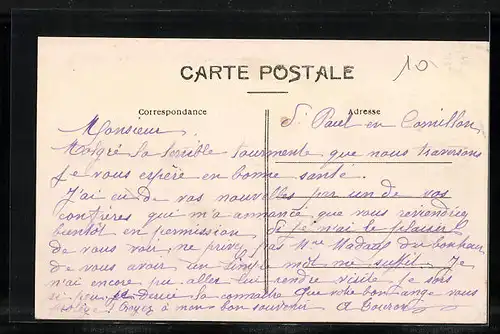 CARTE POSTALE
10
Correspondance
Adresse
St Paul en Cornillon
Monsieur
Malgré la terrible tourmente que nous traversons
je vous espère en bonne santé.
J'ai eu de vos nouvelles par un de vos
confrères qui m'a annoncé que vous reviendriez
bientôt en permission. Si je n'ai le plaisir
de vous voir, ne privez pas Mme du bonheur
de vous avoir un simple mot me suffit. Je
n'ai encore pu aller lui rendre visite je sais
si peu la connaître que votre bon ange vous
Croyez à mon bon souvenir A